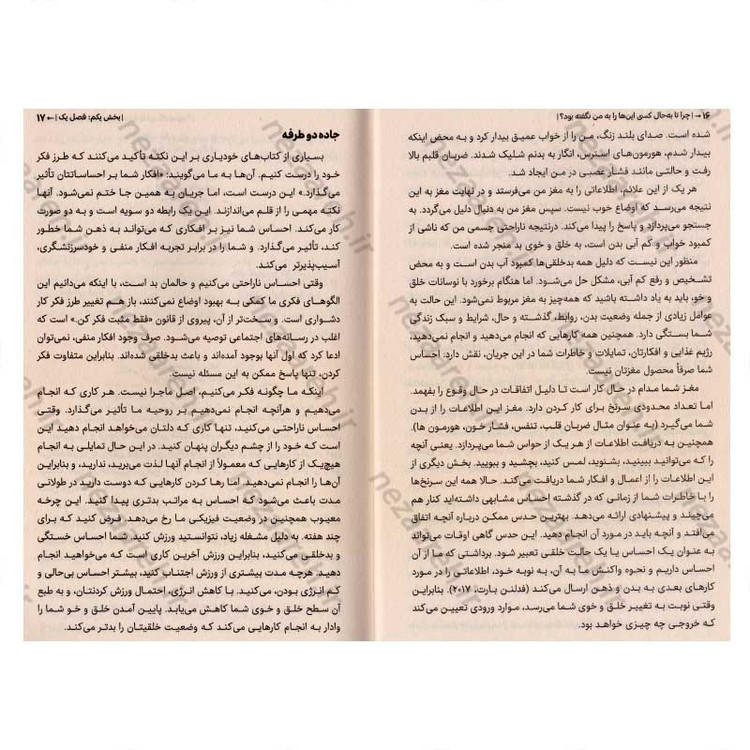 ۱۶ → | چرا تا به‌حال کسی این‌ها را به من نگفته بود؟ |
شده است. صدای بلند زنگ، من را از خواب عمیق بیدار کرد و به محض اینکه
بیدار شدم، هورمون‌های استرس، انگار به بدنم شلیک شدند. ضربان قلبم بالا
رفت و حالتی مانند فشار عصبی در من ایجاد شد.
هر یک از این علائم، اطلاعاتی را به مغز من می‌فرستد و در نهایت مغز به این
نتیجه می‌رسد که اوضاع خوب نیست. سپس مغز من به دنبال دلیل می‌گردد. به
جستجو می‌پردازد و پاسخ را پیدا می‌کند. درنتیجه ناراحتی جسمی من که ناشی از
کمبود خواب و کم آبی بدن است، به خلق و خوی بد منجر شده است.
منظور این نیست که دلیل همه بدخلقی‌ها کمبود آب بدن است و به محض
تشخیص و رفع کم آبی، مشکل حل می‌شود. اما هنگام برخورد با نوسانات خلق
و خو، باید به یاد داشته باشید که همه‌چیز به مغز مربوط نمی‌شود. این حالت به
عوامل زیادی از جمله وضعیت بدن، روابط، گذشته و حال، شرایط و سبک زندگی
شما بستگی دارد. همچنین همه کارهایی که انجام می‌دهید و انجام نمی‌دهید،
رژیم غذایی و افکارتان، تمایلات و خاطرات شما در این جریان، نقش دارد. احساس
شما صرفاً محصول مغزتان نیست.
مغز شما مدام در حال کار است تا دلیل اتفاقات در حال وقوع را بفهمد.
اما تعداد محدودی سرنخ برای کار کردن دارد. مغز این اطلاعات را از بدن
شما می‌گیرد (به عنوان مثال ضربان قلب، تنفس، فشار خون، هورمون ها).
همچنین به دریافت اطلاعات از هر یک از حواس شما می‌پردازد. یعنی آنچه
را که می‌توانید ببینید، بشنوید، لمس کنید، بچشید و ببویید. بخش دیگری از
این اطلاعات را از اعمال و افکار شما دریافت می‌کند. حالا همه این سرنخ‌ها
را با خاطرات شما از زمانی که در گذشته احساس مشابهی داشته‌اید کنار هم
می‌چیند و پیشنهادی ارائه می‌دهد. بهترین حدس ممکن درباره آنچه اتفاق
می‌افتد و آنچه باید در مورد آن انجام دهید. این حدس گاهی اوقات می‌تواند
به عنوان یک احساس یا یک حالت خلقی تعبیر شود. برداشتی که ما از آن
احساس داریم و نحوه واکنش ما به آن، به نوبه خود، اطلاعاتی را در مورد
کارهای بعدی به بدن و ذهن ارسال می‌کند (فدلنن بارت، ۲۰۱۷). بنابراین
وقتی نوبت به تغییر خلق و خوی شما می‌رسد، موارد ورودی تعیین می‌کند
که خروجی چه چیزی خواهد بود.
| بخش یکم: فصل یک | ← ۱۷
جاده دو طرفه
بسیاری از کتاب‌های خودیاری بر این نکته تأکید می‌کنند که طرز فکر
خود را درست کنیم. آن‌ها به ما می‌گویند: «افکار شما بر احساساتتان تأثیر
می‌گذارد.» این درست است، اما جریان به همین جا ختم نمی‌شود. آنها
نکته مهمی را از قلم می‌اندازند. این یک رابطه دو سویه است و به دو صورت
کار می‌کند. احساس شما نیز بر افکاری که می‌تواند به ذهن شما خطور
کند، تأثیر می‌گذارد. و شما را در برابر تجربه افکار منفی و خودسرزنشگری،
آسیب‌پذیرتر می‌کند.
وقتی احساس ناراحتی می‌کنیم و حالمان بد است، با اینکه می‌دانیم این
الگوهای فکری ما کمکی به بهبود اوضاع نمی‌کنند، باز هم تغییر طرز فکر کار
دشواری است. و سخت‌تر از آن، پیروی از قانون «فقط مثبت فکر کن.» است که
اغلب در رسانه‌های اجتماعی توصیه می‌شود. صرف وجود افکار منفی، نمی‌توان
ادعا کرد که اول آنها بوجود آمده‌اند و باعث بدخلقی شده‌اند. بنابراین متفاوت فکر
کردن، تنها پاسخ ممکن به این مسئله نیست.
اینکه ما چگونه فکر می‌کنیم، اصل ماجرا نیست. هر کاری که انجام
می‌دهیم و هرآنچه انجام نمی‌دهیم بر روحیه ما تأثیر می‌گذارد. وقتی
احساس ناراحتی می‌کنید، تنها کاری که دلتان می‌خواهد انجام دهید این
است که خود را از چشم دیگران پنهان کنید. در این حال تمایلی به انجام
هیچ‌یک از کارهایی که معمولاً از انجام آنها لذت می‌برید، ندارید، و بنابراین
آن‌ها را انجام نمی‌دهید. اما رها کردن کارهایی که دوست دارید در طولانی
مدت باعث می‌شود که احساس به مراتب بدتری پیدا کنید. این چرخه
معیوب همچنین در وضعیت فیزیکی ما رخ می‌دهد. فرض کنید که برای
چند هفته، به دلیل مشغله زیاد، نتوانستید ورزش کنید. شما احساس خستگی
و بدخلقی می‌کنید، بنابراین ورزش آخرین کاری است که می‌خواهید انجام
دهید. هرچه مدت بیشتری از ورزش اجتناب کنید، بیشتر احساس بی‌حالی و
کم انرژی بودن، می‌کنید. با کاهش انرژی، احتمال ورزش کردنتان، و به طبع
آن سطح خلق و خوی شما کاهش می‌یابد. پایین آمدن خلق و خو شما را
وادار به انجام کارهایی می‌کند که وضعیت خلقیتان را بدتر می‌کند.